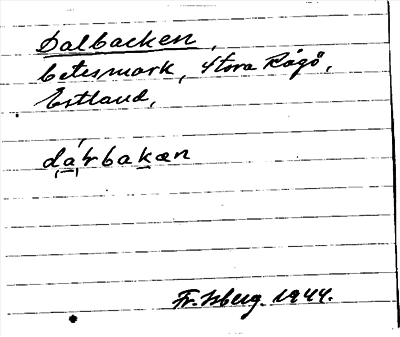 Dalbacken,
betesmark, Stora Rågö,
Estland,
dàɽbakæn
Fr. Isberg 1944.